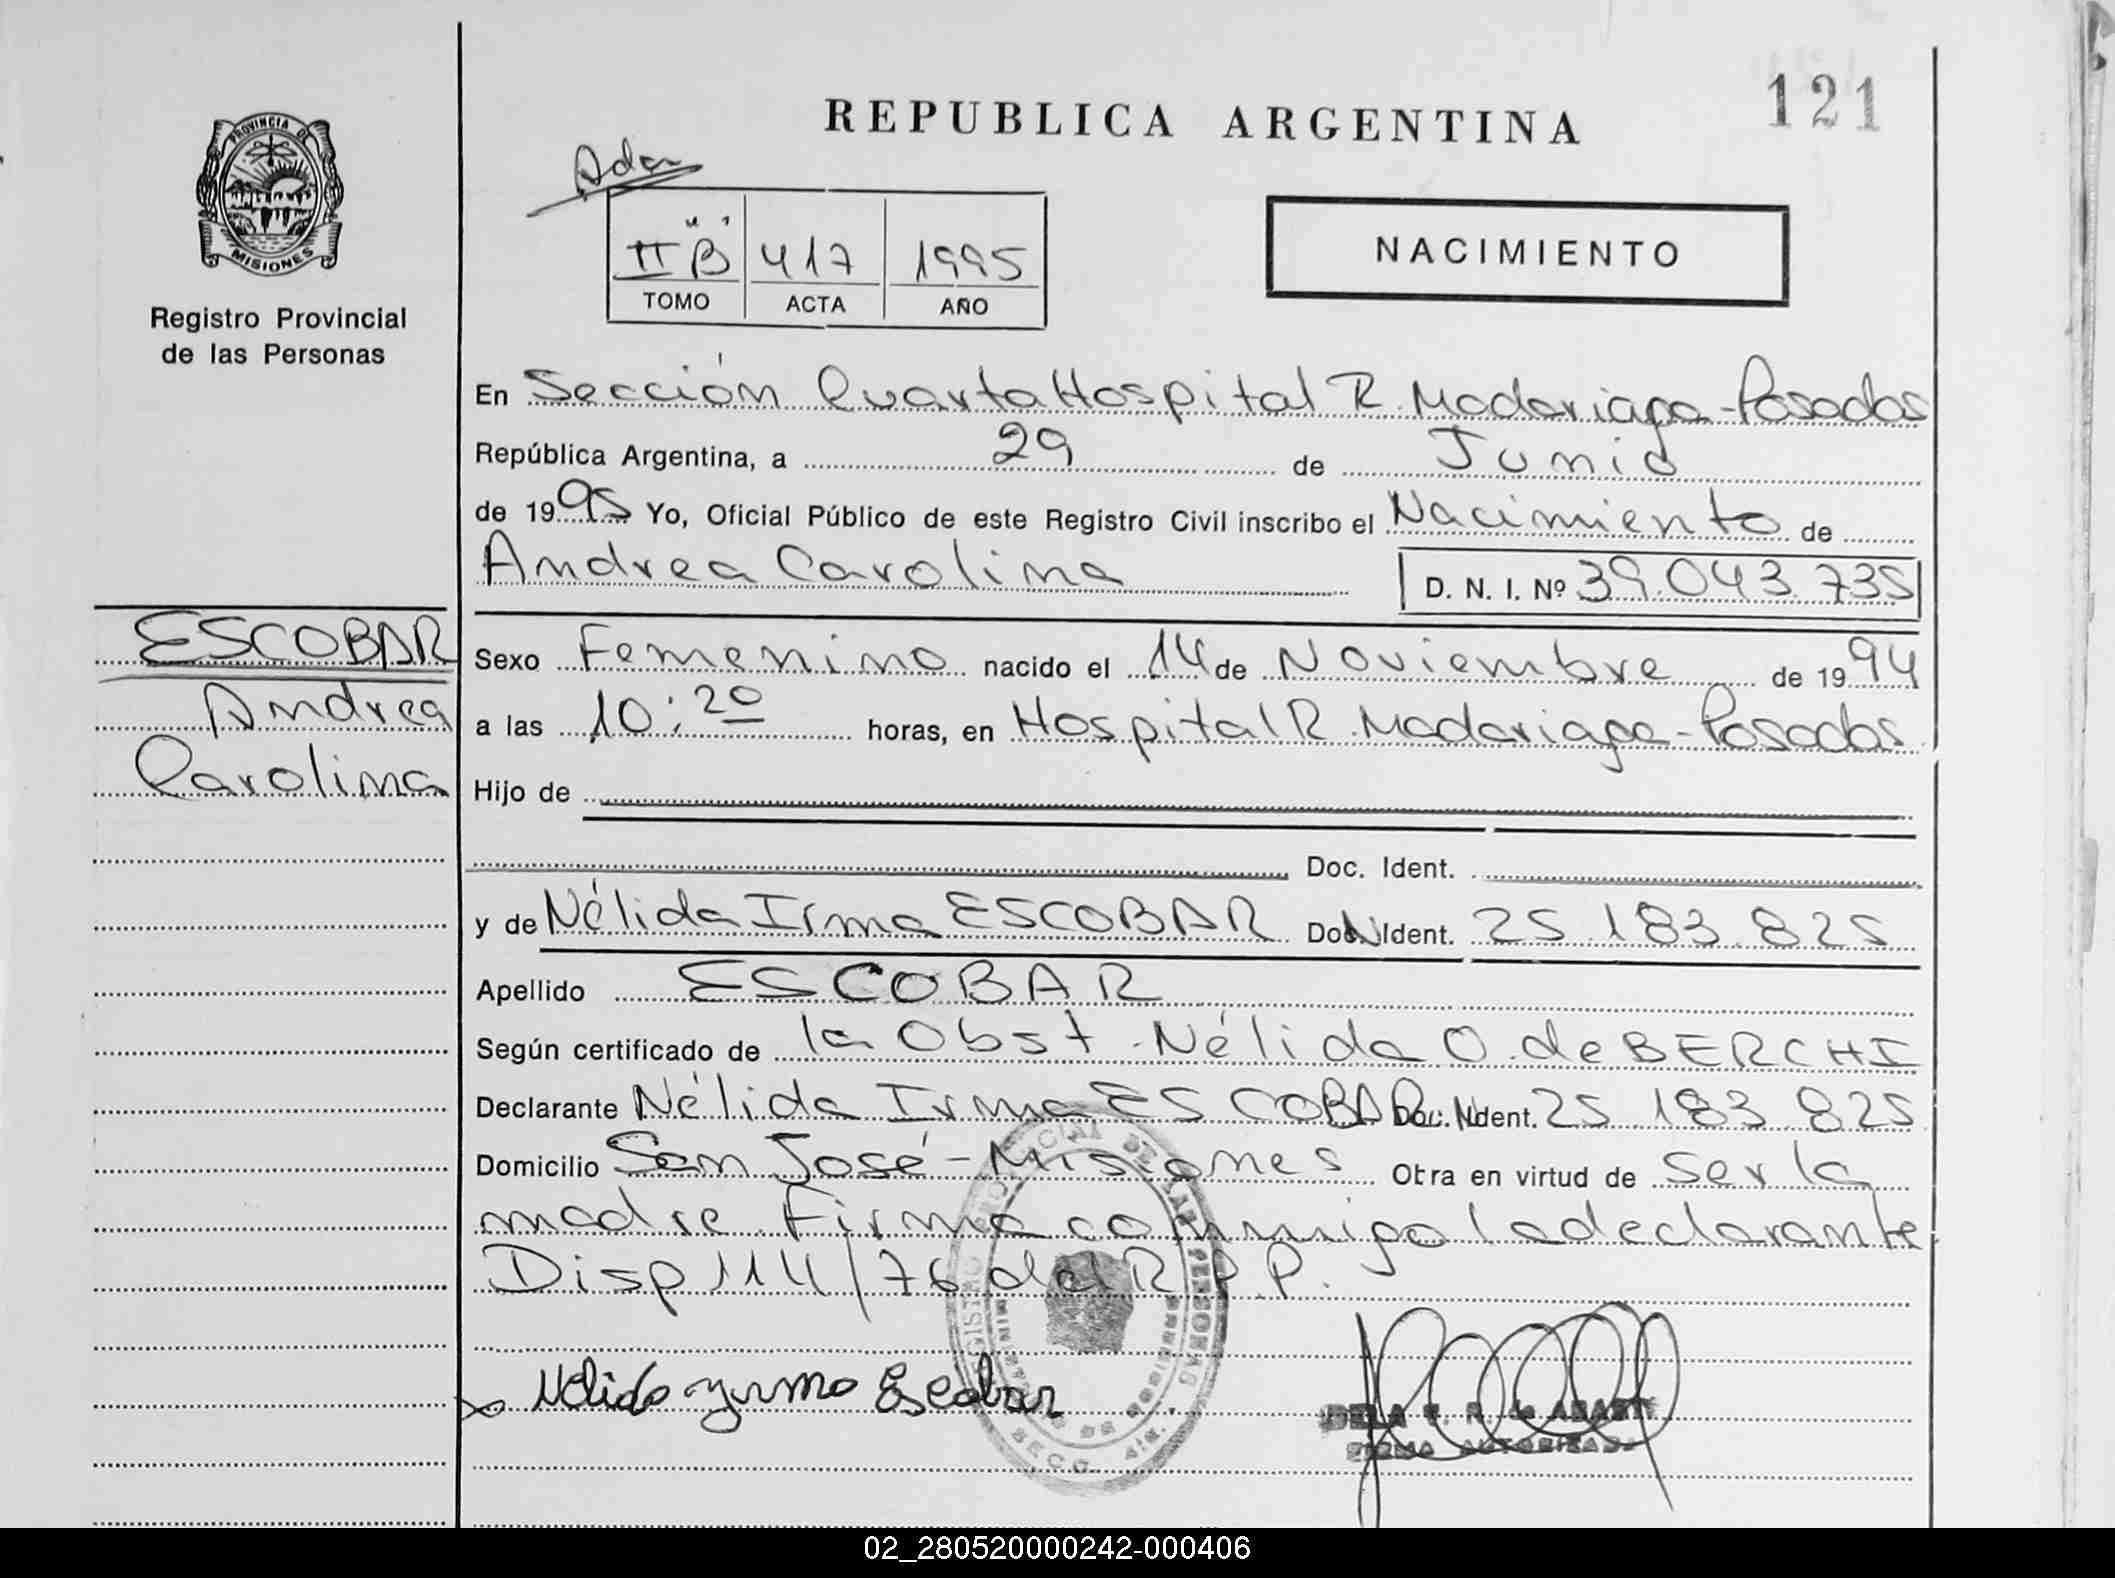 REPUBLICA ARGENTINA
121
PROVINCIA DE
MISIONES
Registro Provincial
de las Personas
II "B" 417 1995
TOMO ACTA AÑO
NACIMIENTO
En Sección Cuarta Hospital R. Madariaga - Posadas
República Argentina, a 29 de Junio
de 1995 Yo, Oficial Público de este Registro Civil inscribo el Nacimiento de
Andrea Carolina D. N. I. Nº 39.043.735
ESCOBAR
Andrea
Carolina
Sexo Femenino nacido el 14 de Noviembre de 1994
a las 10:20 horas, en Hospital R. Madariaga - Posadas
Hijo de
Doc. Ident.
y de Nélida Irma ESCOBAR Doc. Ident. 25.183.825
Apellido ESCOBAR
Según certificado de la Obst. Nélida O. de BERCHI
Declarante Nélida Irma ESCOBAR Doc. Ident. 25.183.825
Domicilio San José - Misiones Otra en virtud de ser la
madre. Firma conmigo la declarante
Disp 114/76 del R.P.P.
Nélida Yrma Escobar
FIRMA AUTORIZADA
02_280520000242-000406